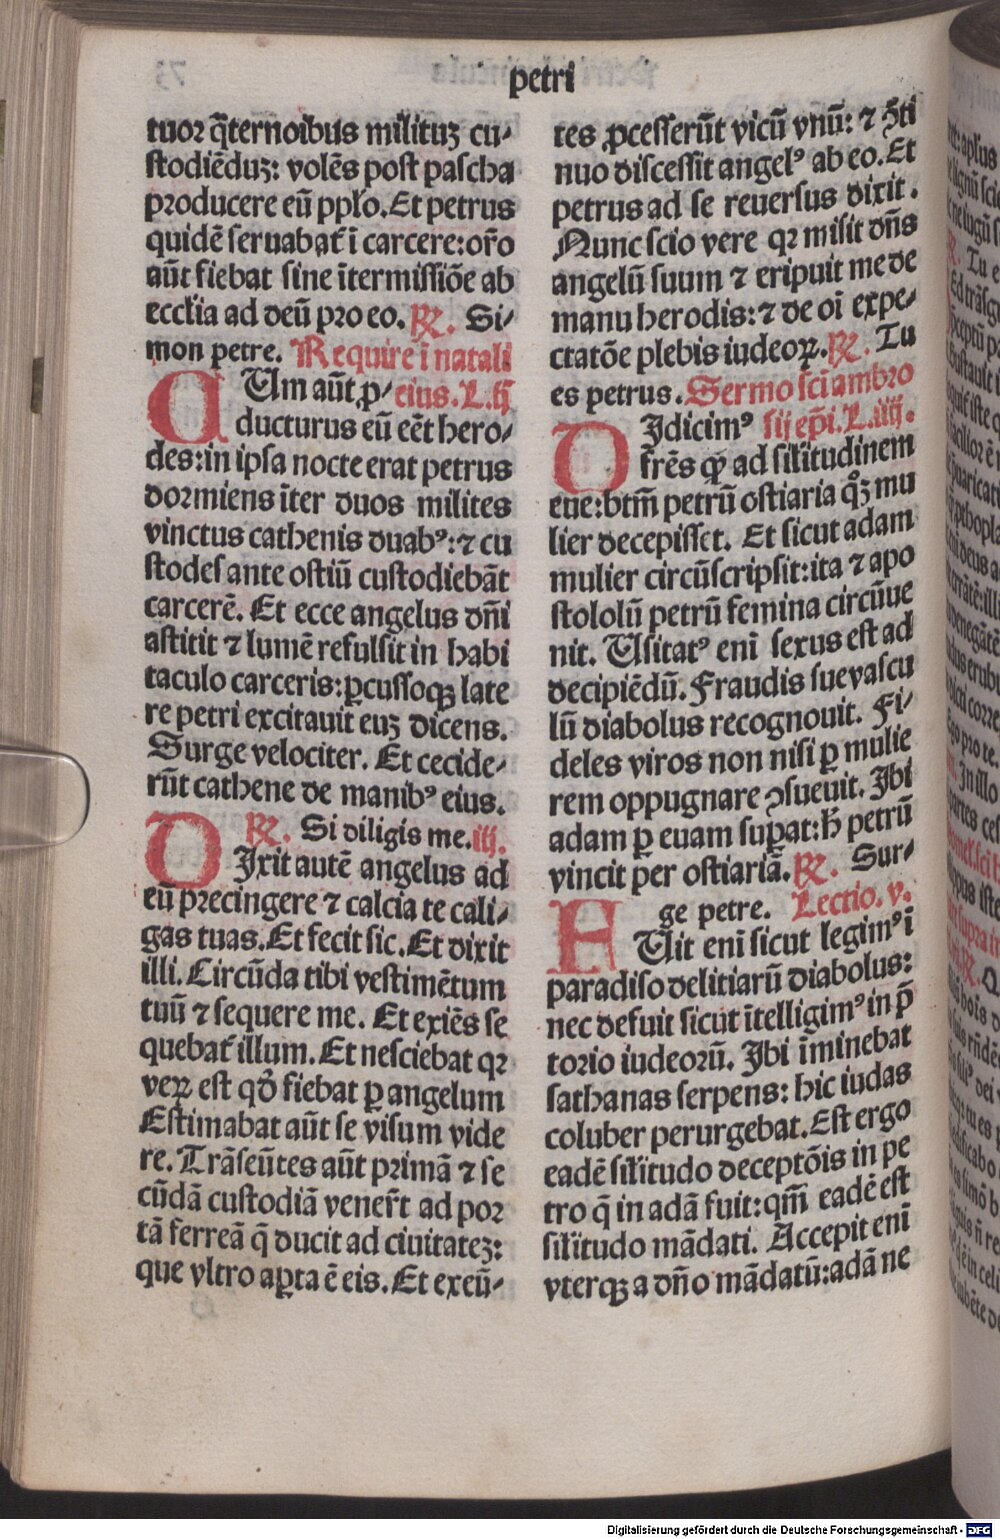 petri
tuor q̄ternoibus milituʒ cu⸗
stodiēduʒ: volēs post pascha
producere eū ppl'o. Et petrus
quidē seruabat̄ ī carcere: or̄o
aūt fiebat sine ītermissiōe ab
eccl'ia ad deū pro eo. ℟. Si⸗
mon petre. Require ī natali
CUm aūt p̄⸗ eius. L. ij
ducturus eū eēt hero⸗
des: in ipsa nocte erat petrus
dormiens īter duos milites
vinctus cathenis duabꝰ: ⁊ cu
stodes ante ostiū custodiebāt
carcerē. Et ecce angelus dn̄i
astitit ⁊ lumē refulsit in habi
taculo carceris: ꝑcussoqꝫ late
re petri excitauit euʒ dicens.
Surge velociter. Et cecide⸗
rūt cathene de manibꝰ eius.
℟. Si diligis me. iij.
DIxit autē angelus ad
eū precingere ⁊ calcia te cali⸗
gas tuas. Et fecit sic. Et dixit
illi. Circūda tibi vestimētum
tuū ⁊ sequere me. Et exiēs se
quebat̄ illum. Et nesciebat qꝛ
veꝝ est qd̄ fiebat ꝑ angelum
Estimabat aūt se visum vide
re. Trāseūtes aūt primā ⁊ se
cūdā custodiā vener̄t ad por
tā ferreā q̄ ducit ad ciuitateʒ:
que vltro aꝑta ē eis. Et exeū⸗
tes ꝓcesserūt vicū vnū: ⁊ ꝯ̄ti
nuo discessit angelꝰ ab eo. Et
petrus ad se reuersus dixit.
Nunc scio vere qꝛ misit dn̄s
angelū suum ⁊ eripuit me de
manu herodis: ⁊ de oī expe⸗
ctatōe plebis iudeoꝝ. ℟. Tu
es petrus. Sermo sc̄i ambro
DIdicimꝰ sij ep̄i. L. iiij.
fr̄es ꝙ ad sil'itudinem
eue: btm̄ petrū ostiaria qꝫ mu
lier decepisset. Et sicut adam
mulier circūscripsit: ita ⁊ apo
stololū petrū femina circūue
nit. Usitatꝰ enī sexus est ad
decipiēdū. Fraudis sue vascu
lū diabolus recognouit. Fi⸗
deles viros non nisi ꝑ mulie
rem oppugnare ꝯsueuit. Ibi
adam ꝑ euam suꝑat: h̄ petrū
vincit per ostiariā. ℟. Sur⸗
ge petre. Lectio. v.
AUit enī sicut legimꝰ ī
paradiso delitiarū diabolus:
nec defuit sicut ītelligimꝰ in p̄
torio iudeorū. Ibi īminebat
sathanas serpens: hic iudas
coluber perurgebat. Est ergo
eadē sil'itudo deceptōis in pe
tro q̄ in adā fuit: qm̄ eadē est
sil'itudo mādati. Accepit enī
vterqꝫ a dn̄o mādatū: adā ne
Digitalisierung gefördert durch die Deutsche Forschungsgemeinschaft - DFG